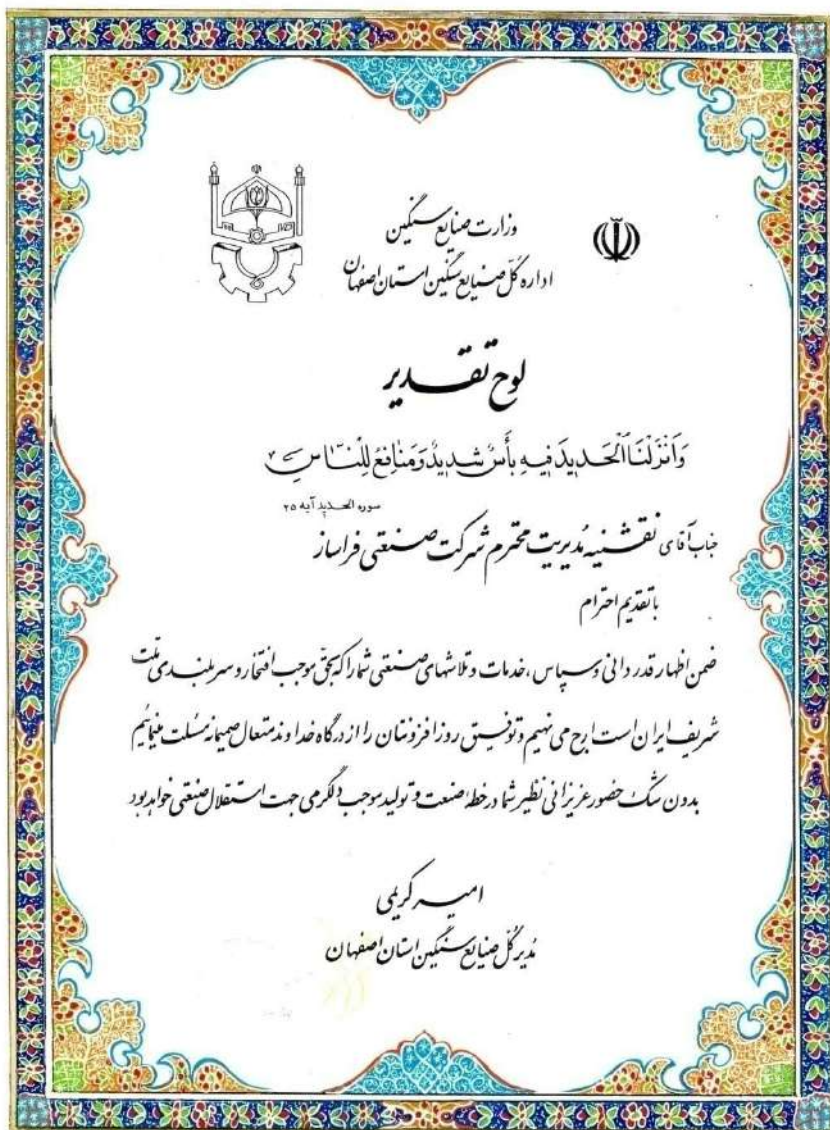 وزارت صنایع سنگین
اداره کل صنایع سنگین استان اصفهان
لوح تقدیر
وَاَنْزَلْنَا الْحَدیدَ فیهِ بَأْسٌ شَدیدٌ وَمَنافِعُ لِلنّاسِ
سوره الحدید آیه ۲۵
جناب آقای نقشینه مدیریت محترم شرکت صنعتی فراساز
با تقدیم احترام
ضمن اظهار قدردانی و سپاس، خدمات و تلاشهای صنعتی شما را که بحق موجب افتخار و سربلندی ملت
شریف ایران است ارج می نهیم و توفیق روز افزونتان را از درگاه خداوند متعال صمیمانه مسئلت مینمائیم
بدون شک حضور عزیزانی نظیر شما در خطه صنعت و تولید موجب دلگرمی جهت استقلال صنعتی خواهد بود
امیر کریمی
مدیر کل صنایع سنگین استان اصفهان